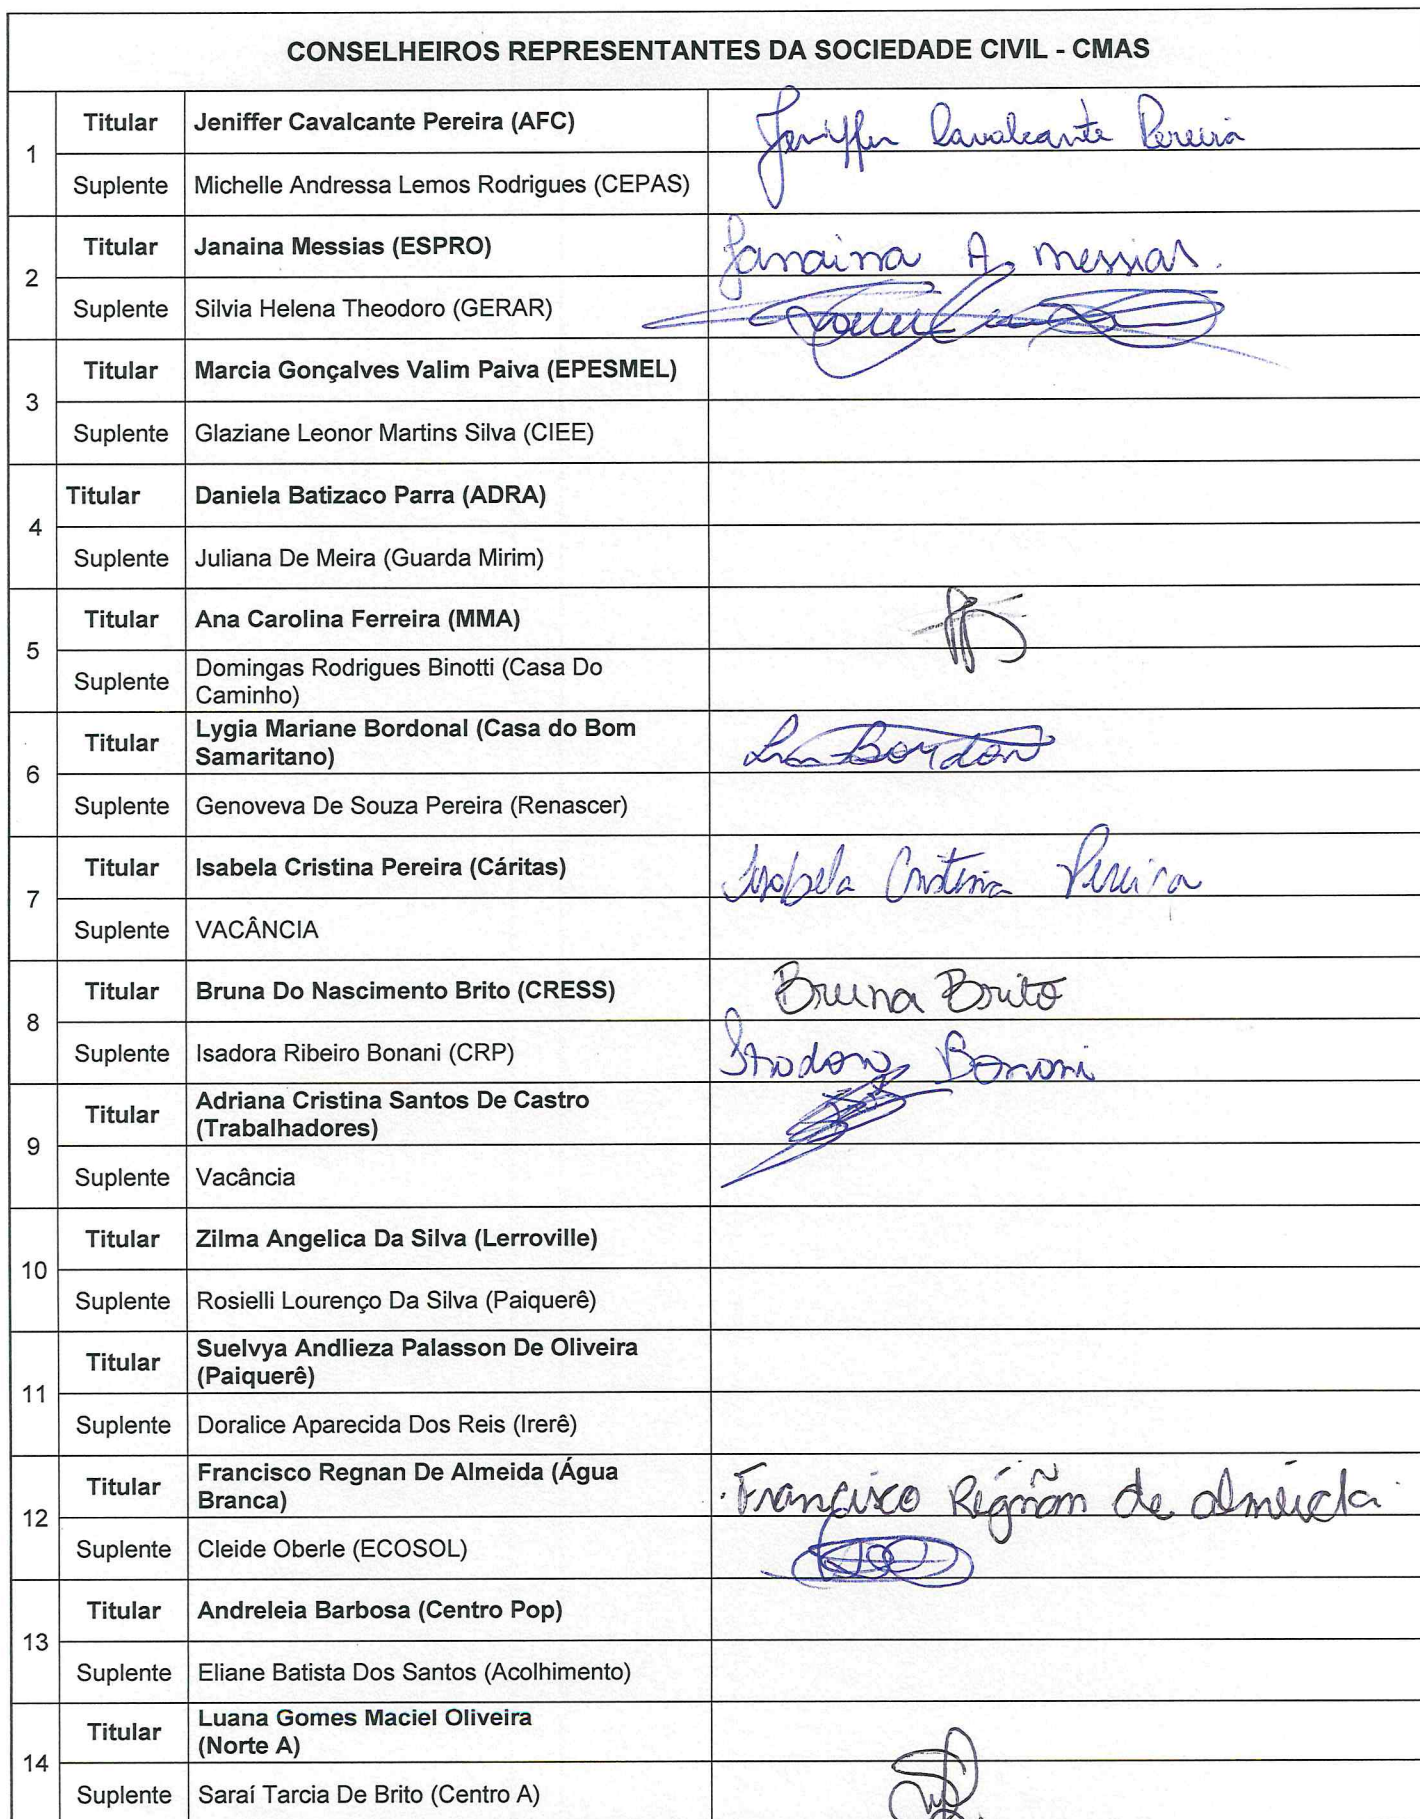 CONSELHEIROS REPRESENTANTES DA SOCIEDADE CIVIL - CMAS
1
Titular Jeniffer Cavalcante Pereira (AFC) Jeniffer Cavalcante Pereira
Suplente Michelle Andressa Lemos Rodrigues (CEPAS)
2
Titular Janaina Messias (ESPRO) Janaina A. Messias.
Suplente Silvia Helena Theodoro (GERAR)
3
Titular Marcia Gonçalves Valim Paiva (EPESMEL)
Suplente Glaziane Leonor Martins Silva (CIEE)
4
Titular Daniela Batizaco Parra (ADRA)
Suplente Juliana De Meira (Guarda Mirim)
5
Titular Ana Carolina Ferreira (MMA)
Suplente Domingas Rodrigues Binotti (Casa Do
Caminho)
6
Titular Lygia Mariane Bordonal (Casa do Bom
Samaritano)
Suplente Genoveva De Souza Pereira (Renascer)
7
Titular Isabela Cristina Pereira (Cáritas) Isabela Cristina Pereira
Suplente VACÂNCIA
8
Titular Bruna Do Nascimento Brito (CRESS) Bruna Brito
Suplente Isadora Ribeiro Bonani (CRP) Isadora Bonani
9
Titular Adriana Cristina Santos De Castro
(Trabalhadores)
Suplente Vacância
10
Titular Zilma Angelica Da Silva (Lerroville)
Suplente Rosielli Lourenço Da Silva (Paiquerê)
11
Titular Suelvya Andlieza Palasson De Oliveira
(Paiquerê)
Suplente Doralice Aparecida Dos Reis (Irerê)
12
Titular Francisco Regnan De Almeida (Água
Branca) Francisco Régnãn de almeida
Suplente Cleide Oberle (ECOSOL)
13
Titular Andreleia Barbosa (Centro Pop)
Suplente Eliane Batista Dos Santos (Acolhimento)
14
Titular Luana Gomes Maciel Oliveira
(Norte A)
Suplente Saraí Tarcia De Brito (Centro A)